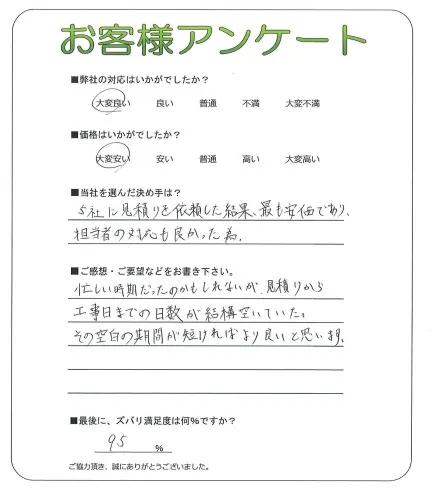 お客様アンケート
■弊社の対応はいかがでしたか?
大変良い 良い 普通 不満 大変不満
■価格はいかがでしたか?
大変安い 安い 普通 高い 大変高い
■当社を選んだ決め手は?
5社に見積りを依頼した結果、最も安価であり、
担当者の対応も良かった為。
■ご感想・ご要望などをお書き下さい。
忙しい時期だったのかもしれないが、見積りから
工事日までの日数が結構空いていた。
その空白の期間が短ければより良いと思います。
■最後に、ズバリ満足度は何%ですか?
95 %
ご協力頂き、誠にありがとうございました。